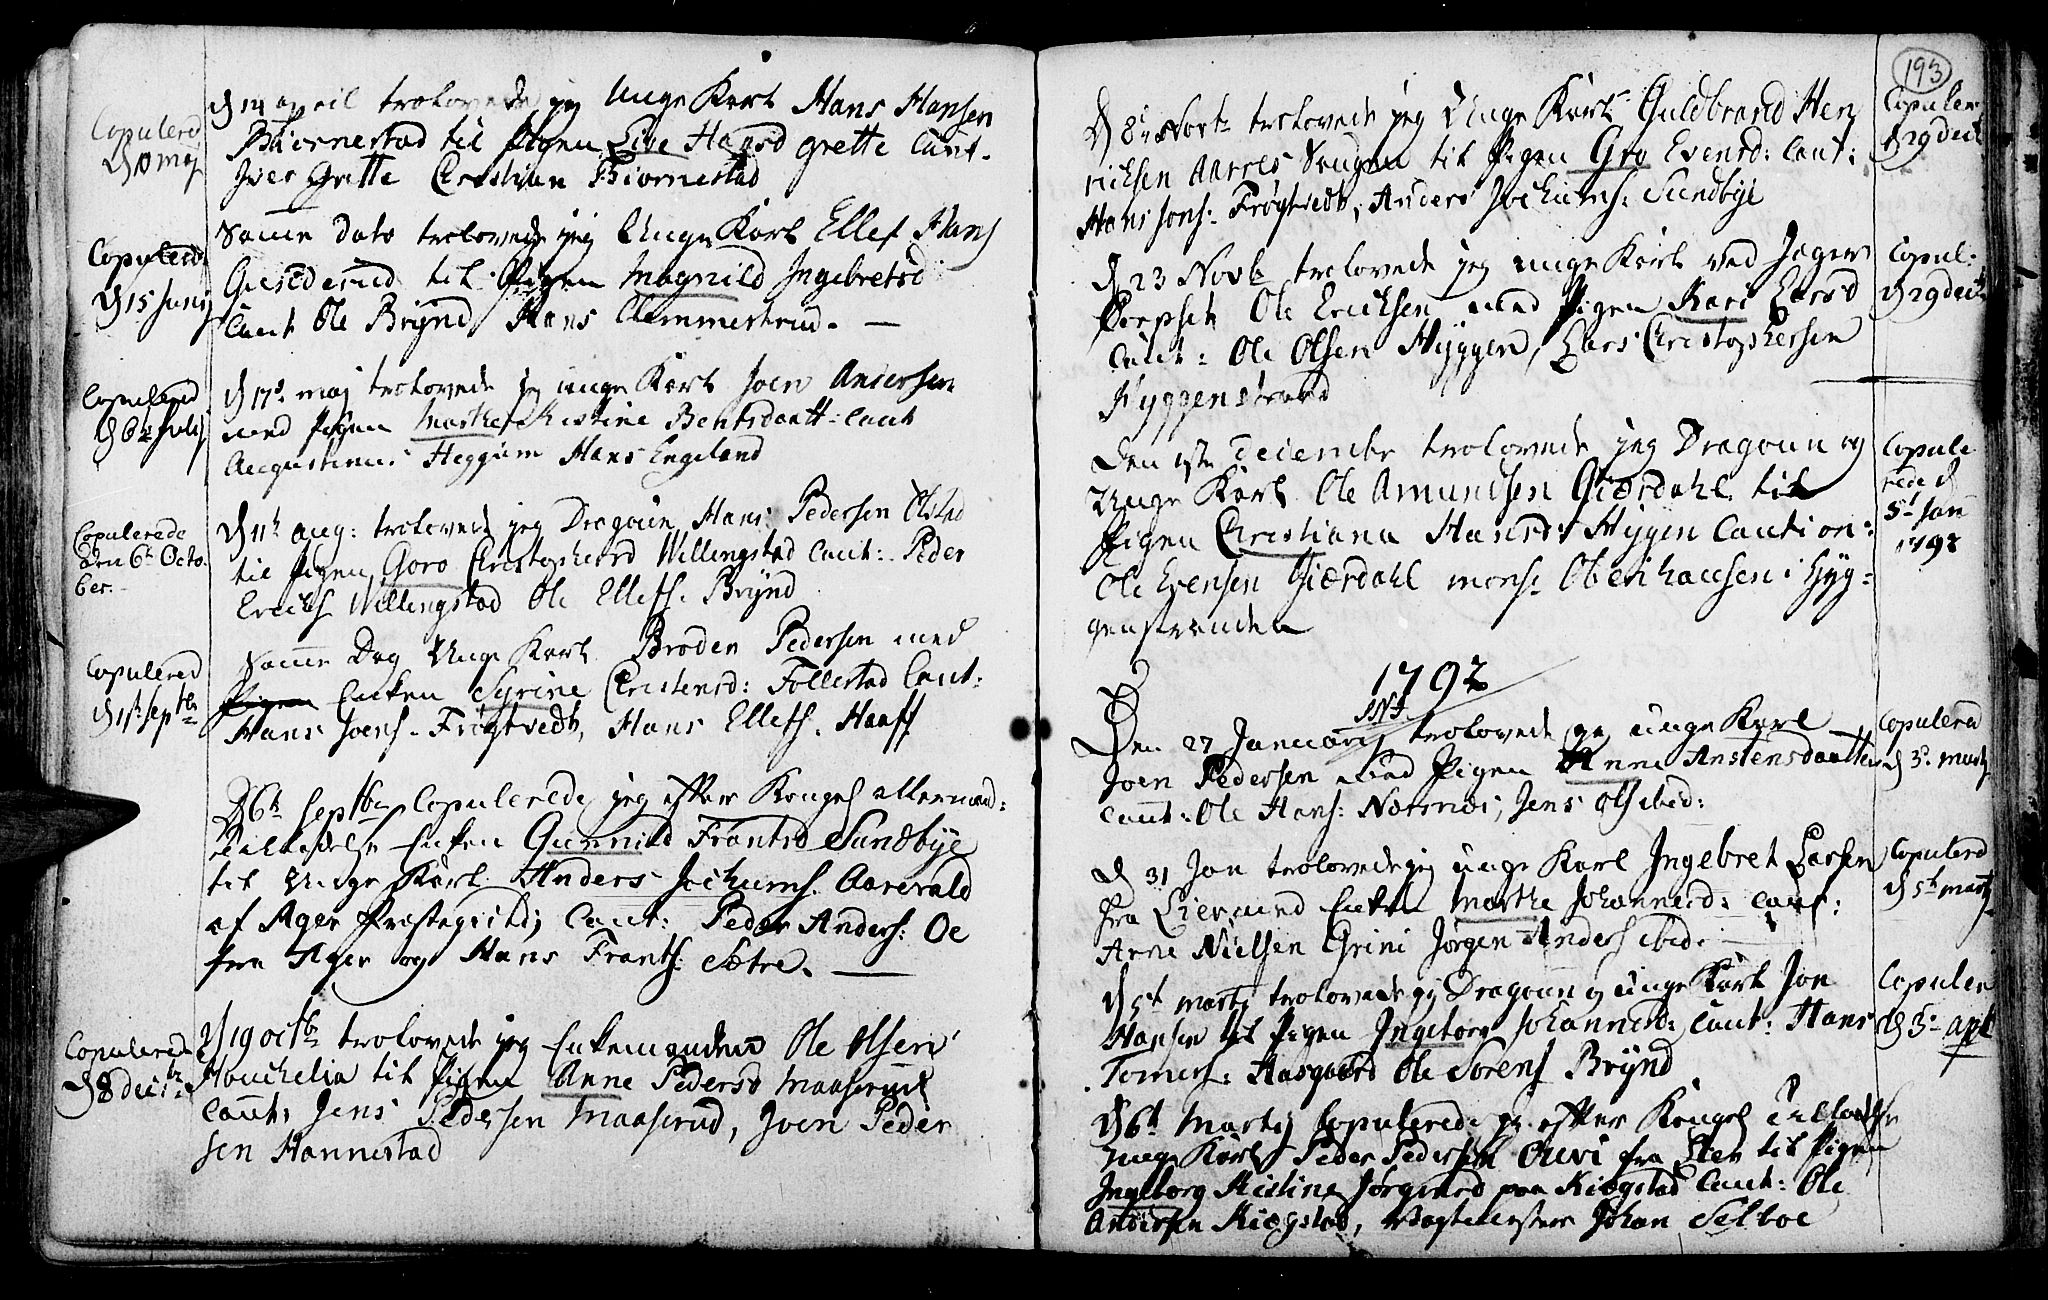 Copulered
d 10 maj
d 14 april trolovede jeg Unge Karl Hans Hansen
Biørnestad til Pigen Live Hansd Grette Caut.
Iver Grette Christian Biørnestad
Copulered
d 15 Junij
Samme Dato trolovede jeg Unge Karl Ellef Hans
til Pigen Magnild Ingebretsd
Caut Ole Brÿnd, Hans Clemmestrud.
Copulered
d 6te Julij
d 17de maj trolovede jeg unge Karl Joen Andersen
med Pigen Marthe Kistine Bentsdaatt: Caut
Augustinus Heggum Hans Engeland
Copulerede
den 6te Octo
ber.
d 11te aug: trolovede jeg Dragoun Hans Pedersen Olstad
til Pigen Goro Christophersd Willingstad Caut: Peder
Erichs Willingstad Ole Ellefs. Brÿnd
Copulered
d 1ste Septbr
Samme Dag Unge Karl Broden Pedersen med
Pigen Enken Syrine Christensd: Follestad Caut:
Hans Joens. Frøgtvedt, Hans Ellefs. Haaff
d 6te Septbr Copulerede jeg efter Kongel allernaad:
Tilladelse Enken Gunnild Frantsd Sundbÿe
til Unge Karl Anders Jochums. Aarevald
af Ager Præstegield; Caut: Peder Anders: Oe
fra Ager og Hans Frants: Sætre.
Copulerede
d 8 decbr
d 19 octbr trolovede jeg Enkemanden Ole Olsen
til Pigen Anne Pedersd Maaserud
Caut: Jens Pedersen Maaserud, Joen Peder
sen Hannestad
193
Copulered
d 29 decb
d 8de Novbr trolovede jeg Unge Karl Guldbrand Hen
richsen Aarres Saugen til Pigen Gro Evensd: Caut:
Hans Jons: Frøgtvedt, Anders Jochums: Sundbÿe
Copul:
d 29 decb
d 23 Novb trolovede jeg unge Karl ved Jæger
Corpset Ole Ericksen med Pigen Kari Larsd
Caut: Ole Olsen Hÿggen, Lars Christophersen
Hyggenstrand
Copule
rede d
5te Jan
1792
Den 1ste December trolovede jeg Dragoun og
Unge Karl Ole Amundsen Giærdahl til
Pigen Christiana Hansd: Hÿgen Caution:
Ole Evensen Giærdahl mons. Oberhausen i Hÿg=
genstranden
1792
INI
Copulered
d 3de martij
Den 27 Januarij trolovede jeg unge Karl
Joen Pedersen med Pigen Anne Anstensdaatter
Caut: Ole Hans: Næsnæs, Jens Ols ibid:
Copulered
d 5te martij
d 31 Jan trolovede jeg unge Karl Ingebret Larsen
fra Lier med Enken Marthe Johannesd: Caut:
Arne Nielsen Grini Jørgen Anders ibid.
Copulered
d 3de april
d 5te martij trolovede jeg Dragoun og unge Karl Jon
Hansen til Pigen Ingeborg Johannesd: Caut: Hans
Tomes: Aasgaard Ole Sørens Brÿnd
d 6te Martij Copulerede jeg efter Kongel Tilladelse
unge Karl Peder Pedersen fra til Pigen
Ingeborg Kistine Jørgensd paa Kiøgstad Caut: Ole
Andersen Kiøgstad, Vagtmester Johan Seltoe